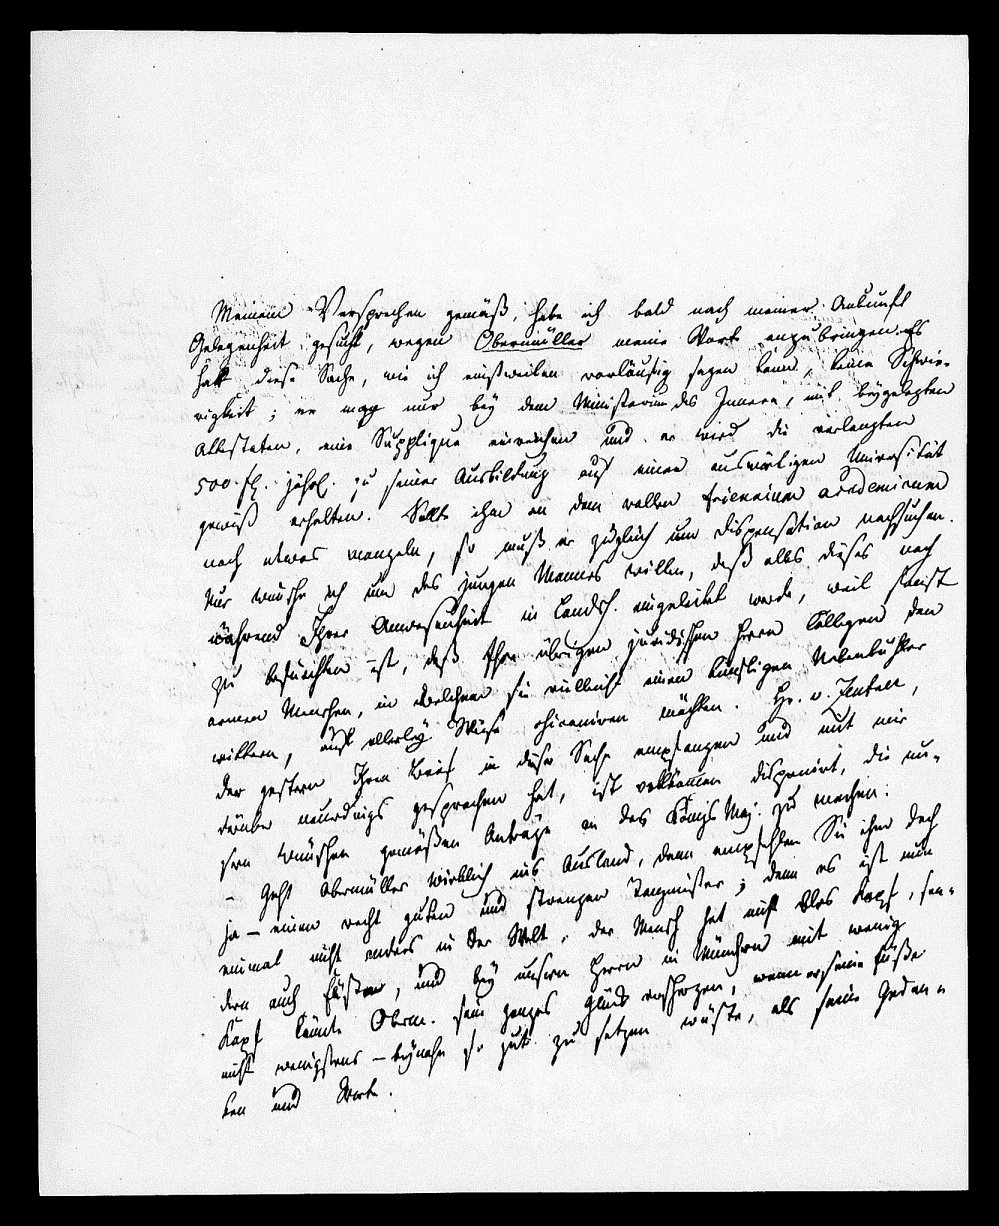 Meinem Versprechen gemäß, habe ich bald nach meiner Ankunft
Gelegenheit gesucht, wegen Obermüller meine Worte anzubringen. Es
hatt diese Sache, wie ich einstweilen vorläufig sagen kann, keine Schwie-
rigkeit; er mag nur bey dem Ministerium des Innern, mit beygelegten
Attestaten, eine Supplique einreichen und er wird die verlangten
500. fl. jährl. zu seiner Ausbildung auf einer auswärtigen Universität
gewiß erhalten. Sollte ihm an dem vollen triennium academicum
noch etwas mangeln, so muß er zugleich um Dispensation nachsuchen.
Nur wünsche ich um des jungen Mannes willen, daß alles dieses noch
während Ihrer Anwesenheit in Landsh. eingeleitet werde, weil sonst
zu befürchten ist, daß Ihre übrigen juridischen Herrn Collegen den
armen Menschen, in welchem sie vielleicht einen künftigen Nebenbuhler
wittern, auf allerley Weise chicaniren möchten. Hr. v. Zentner,
der gestern Ihren Brief in dieser Sache empfangen und mit mir
darüber neuerdings gesprochen hat, ist vollkommen disponirt, die un-
sern Wünschen gemäßen Anträge an des Königs Maj. zu machen.
– Geht Obermüller wirklich ins Ausland, dann empfehlen Sie ihm doch
ja – einen recht guten und strengen Tanzmeister; denn es ist nun
einmal nicht anders in der Welt, der Mensch hat nicht blos Kopf, son-
dern auch Füsse, und bey unsern Herrn in München mit wenig
Kopf könnte Oberm. sein ganzes Glück verscherzen, wenn er seine Füße
nicht wenigstens – beynahe so gut zu setzen wüste, als seine Gedan-
ken und Worte.